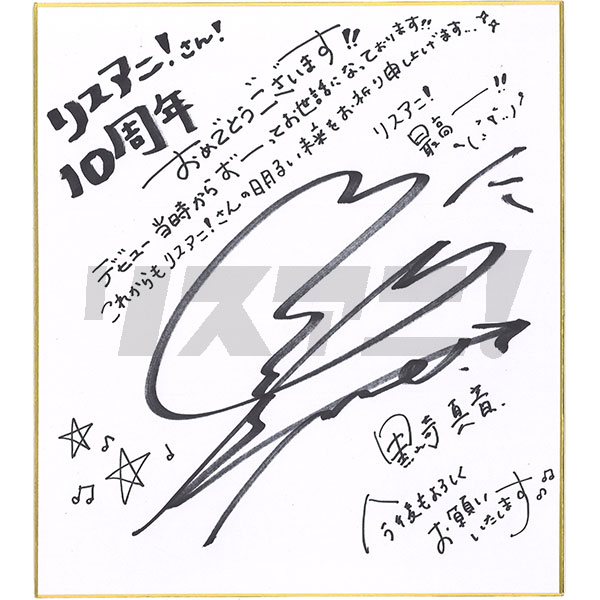 リスアニ!さん!
10周年
おめでとうございます!!
デビュー当時からずーっとお世話になっております!!
これからもリスアニ!さんの明るい未来をお祈り申し上げます…☆☆
リスアニ!
最高ー!!
リスアニ!
黒崎真音.
今後もよろしく
お願い
いたします